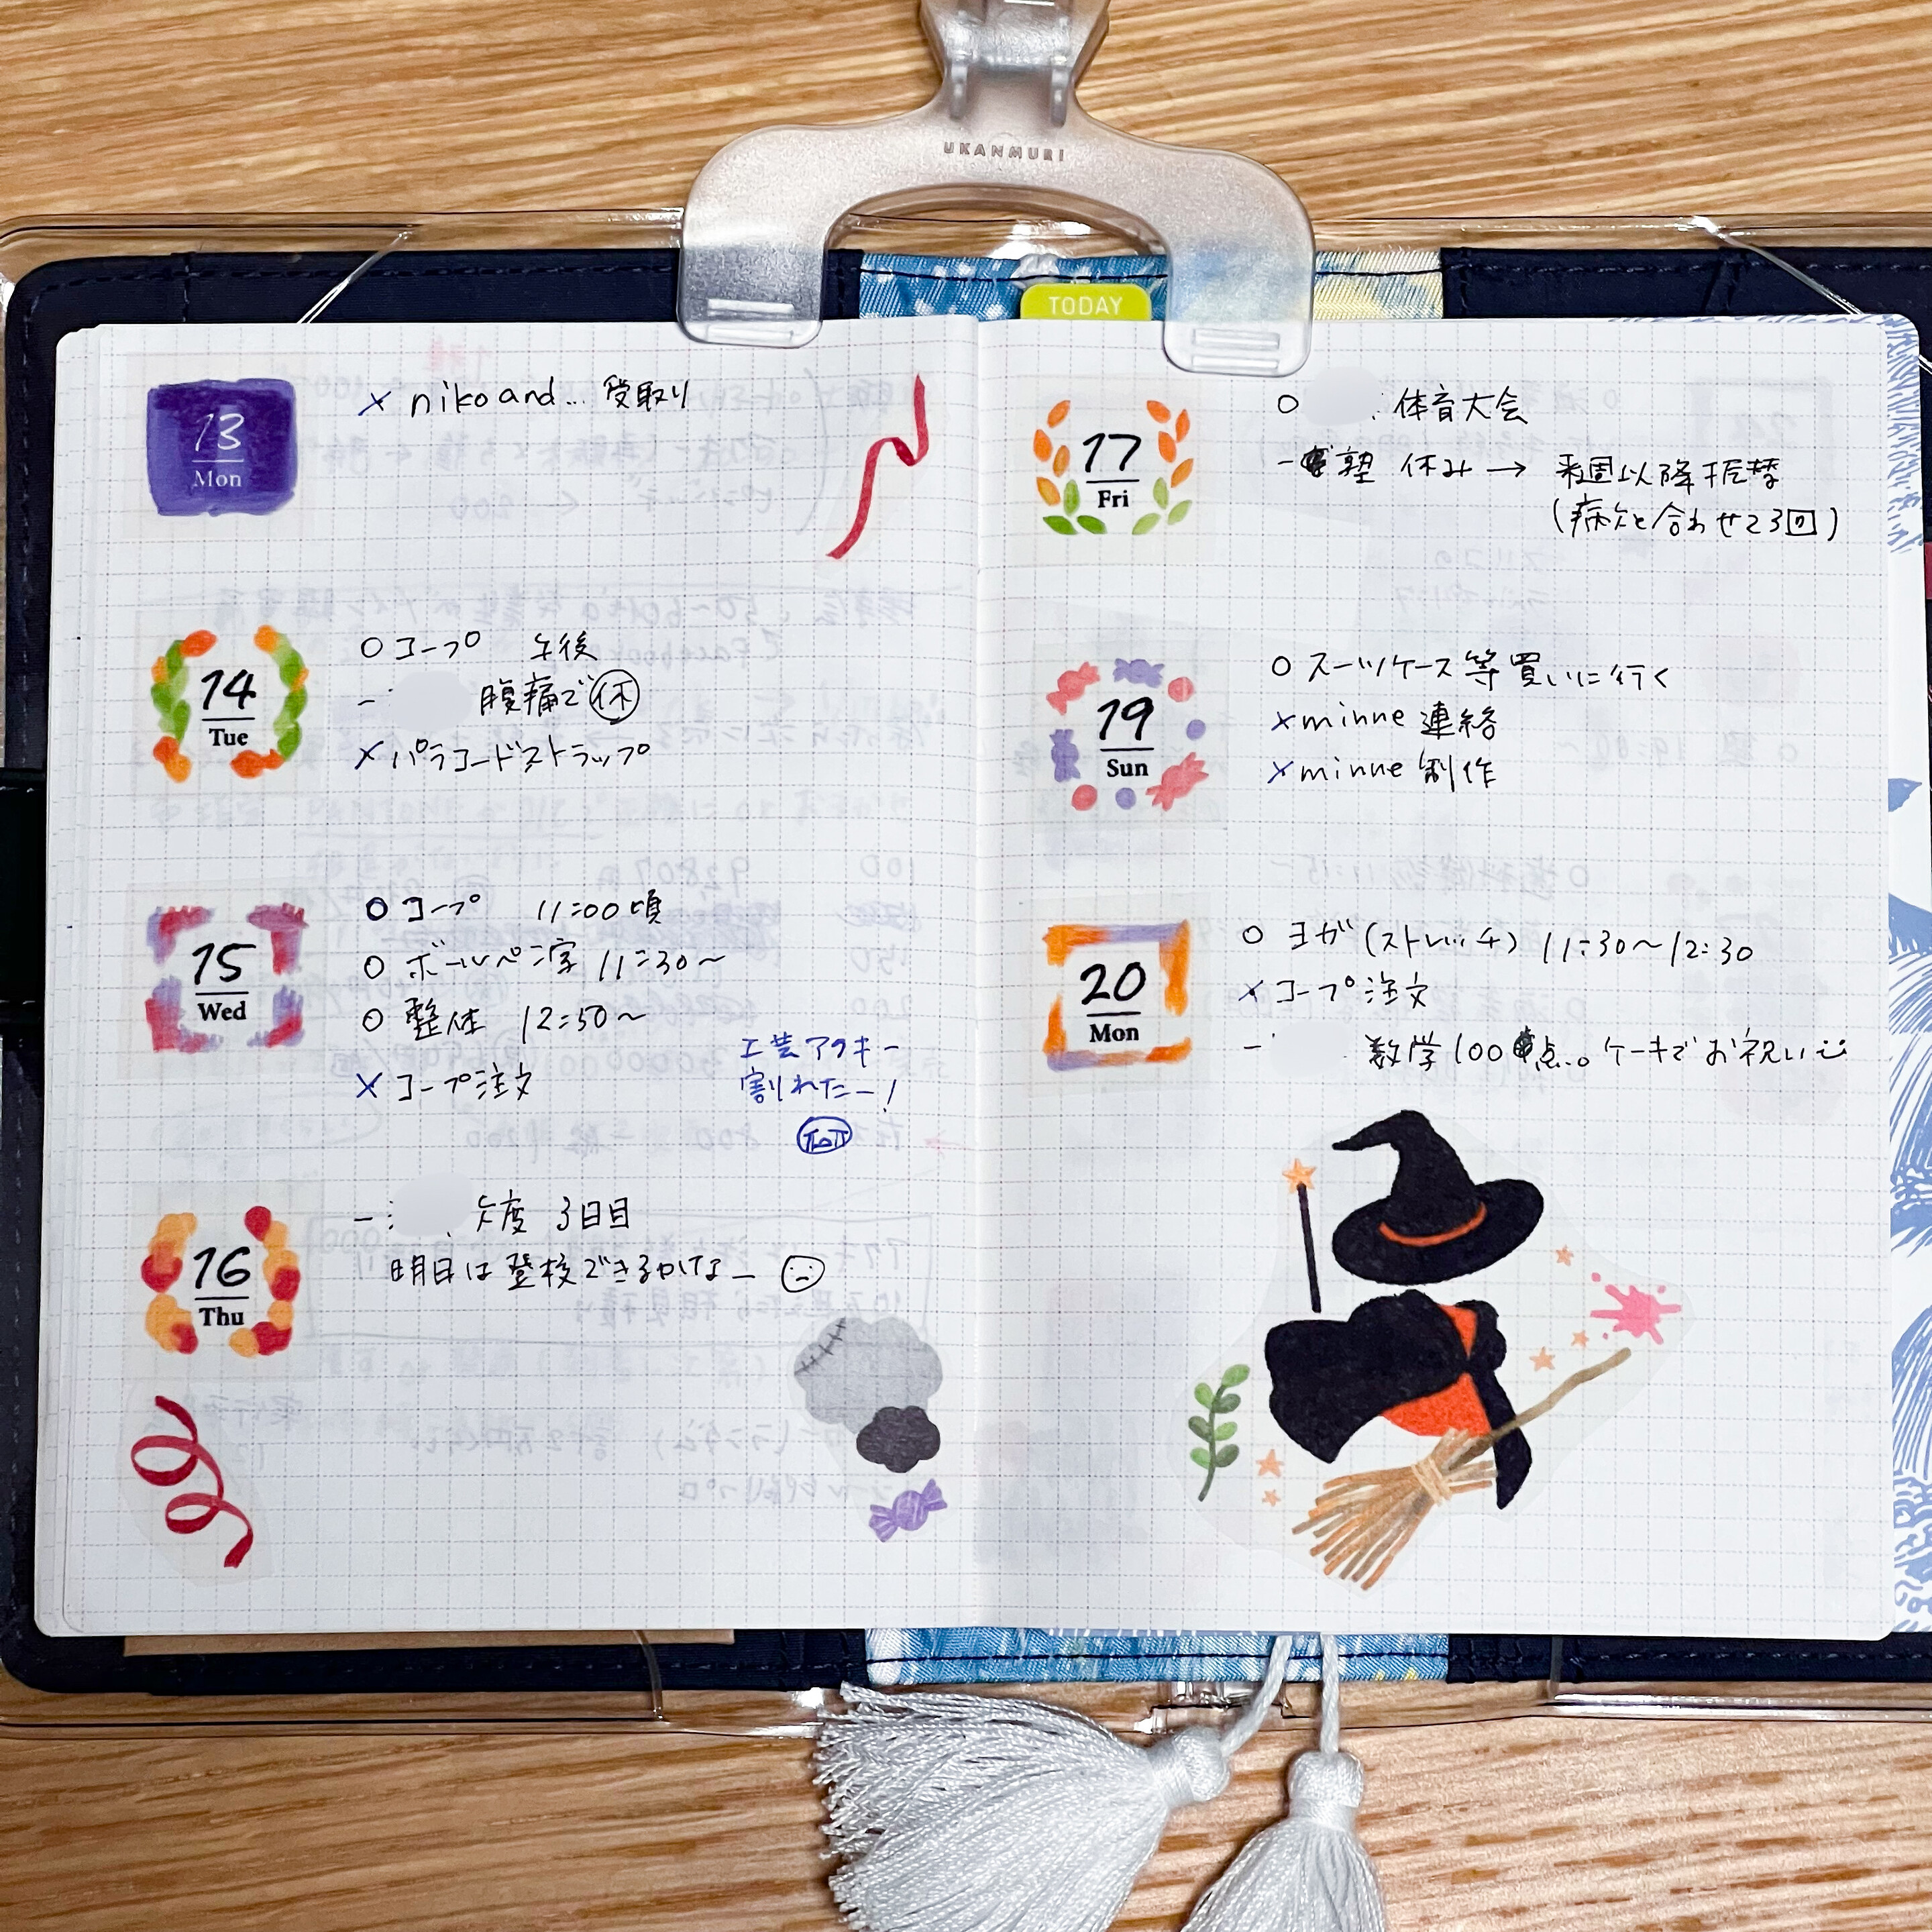 UKANMURI
TODAY
13
Mon
× niko and... 受取り
14
Tue
○ コープ 午後
- 腹痛で休
× パラコードストラップ
15
Wed
○ コープ 11:00頃
○ ボールペン字 11:30〜
○ 整体 12:50〜
× コープ注文
工芸アクキー
割れたー!
16
Thu
- 欠席 3日目
明日は登校できるかなー
17
Fri
○ 体育大会
- 塾 休み → 来週以降振替
(病欠と合わせて3回)
19
Sun
○ スーツケース等買いに行く
× minne 連絡
× minne 制作
20
Mon
○ ヨガ(ストレッチ) 11:30〜12:30
× コープ注文
- 数学100点。。ケーキでお祝い